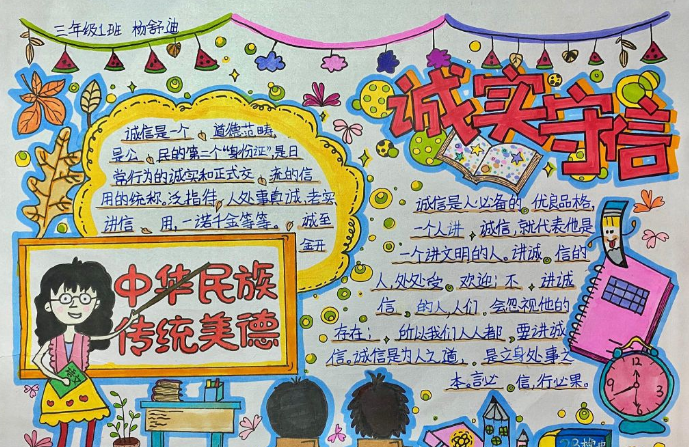 三年级1班 杨舒迪
诚实守信
诚信是一个、道德范畴,
是公、民的第二个“身份证”,是日
常行为的诚实和正式交、流的信
用的统称。泛指待、人处事真诚、老实
讲信、用,一诺千金等等。、诚至
金开
中华民族
传统美德
诚信是人必备的、优良品格,
一个人讲、诚信,就代表他是
一个讲文明的人。讲诚、信的
人,处处受、欢迎;不、讲诚
信、的人,人们、会忽视他的
存在;、所以我们人人都、要讲诚
信。诚信是为人之道,、是立身处事之
本。言必、信,行必果。